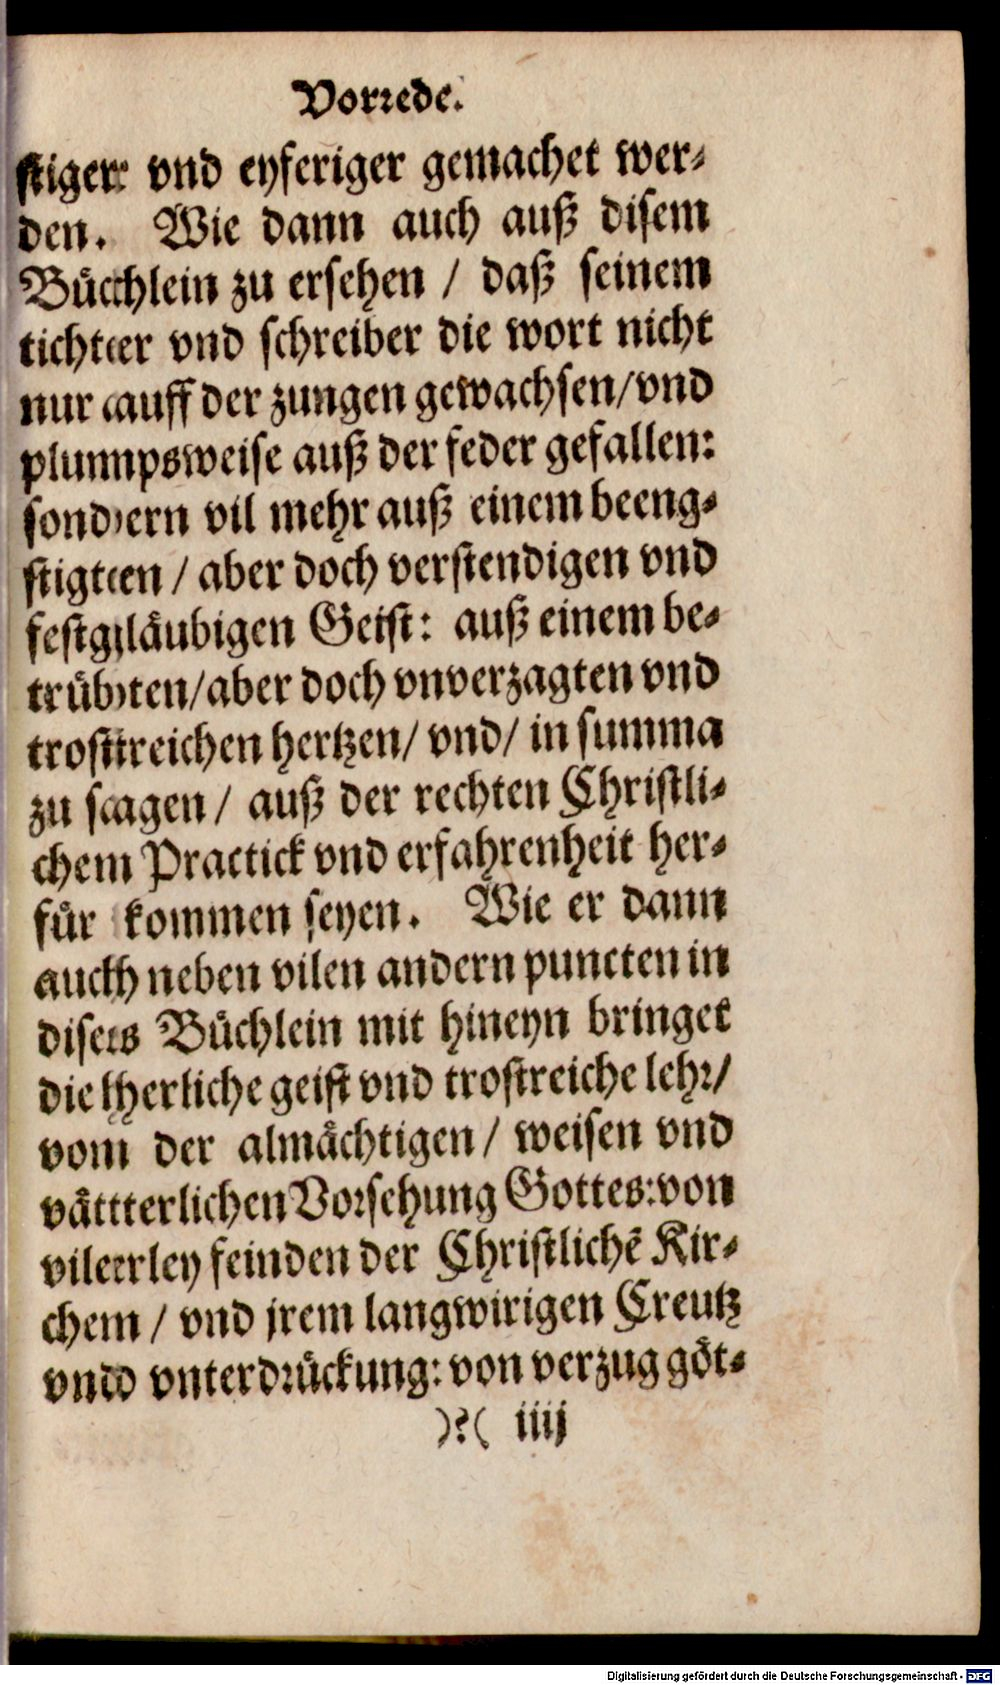 Vorrede.
stiger vnd eyferiger gemachet wer-
den. Wie dann auch auß disem
Büchlein zu ersehen / daß seinem
tichter vnd schreiber die wort nicht
nur auff der zungen gewachsen/vnd
plumpsweise auß der feder gefallen:
sondern vil mehr auß einem beeng-
stigten / aber doch verstendigen vnd
festgläubigen Geist: auß einem be-
trübten/aber doch vnverzagten vnd
trostreichen hertzen/ vnd/ in summa
zu sagen / auß der rechten Christli-
chem Practick vnd erfahrenheit her-
für kommen seyen. Wie er dann
auch neben vilen andern puncten in
dises Büchlein mit hineyn bringet
die herliche geist vnd trostreiche lehr/
vom der almächtigen / weisen vnd
vätterlichen Vorsehung Gottes: von
vilerley feinden der Christlichē Kir-
chem / vnd jrem langwirigen Creutz
vnd vnterdrückung: von verzug göt-
):( iiij
Digitalisierung gefördert durch die Deutsche Forschungsgemeinschaft - DFG